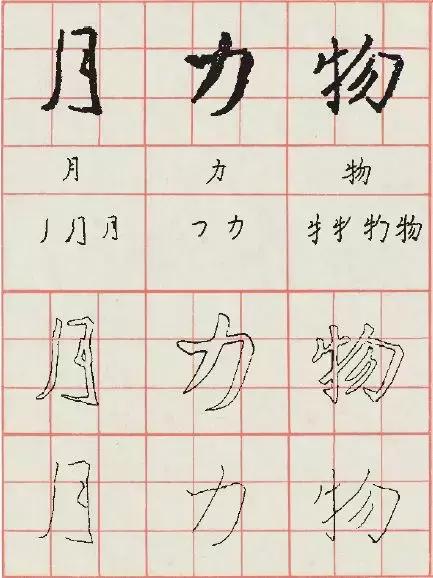 月 力 物
月 力 物
丿 月 月 ㇆ 力 牜 牜 物 物
月 力 物
月 力 物